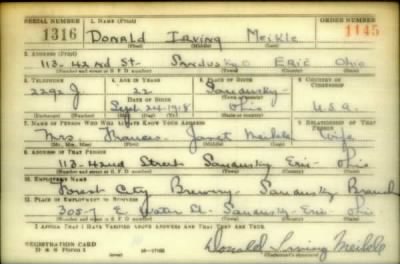 SERIAL NUMBER 1. NAME (Print) ORDER NUMBER
1316 Donald Irving Meikle 1145
(First) (Middle) (Last)
2. ADDRESS (Print)
113- 42nd St- Sandusky O Erie Ohio
(Number and street or R. F. D. number) (Town) (County) (State)
3. TELEPHONE 4. AGE IN YEARS 5. PLACE OF BIRTH 6. COUNTRY OF CITIZENSHIP
2292 J 22 Sandusky-
DATE OF BIRTH
Sept 24-1918 Ohio U.S.A.
(Exchange) (Number) (Mo.) (Day) (Yr.) (State or country)
7. NAME OF PERSON WHO WILL ALWAYS KNOW YOUR ADDRESS 8. RELATIONSHIP OF THAT PERSON
Mrs. Frances Janet Meikle Wife
(Mr., Mrs., Miss) (First) (Middle) (Last)
9. ADDRESS OF THAT PERSON
113-42nd Street Sandusky Erie- Ohio
(Number and street or R. F. D. number) (Town) (County) (State)
10. EMPLOYER'S NAME
Forest City Brewery- Sandusky Branch
11. PLACE OF EMPLOYMENT OR BUSINESS
E. Water St. Sandusky-Erie-Ohio
(Number and street or R. F. D. number) (Town) (County) (State)
I AFFIRM THAT I HAVE VERIFIED ABOVE ANSWERS AND THAT THEY ARE TRUE.
REGISTRATION CARD
D. S. S. Form 1 Donald Irving Meikle
(Registrant's signature)